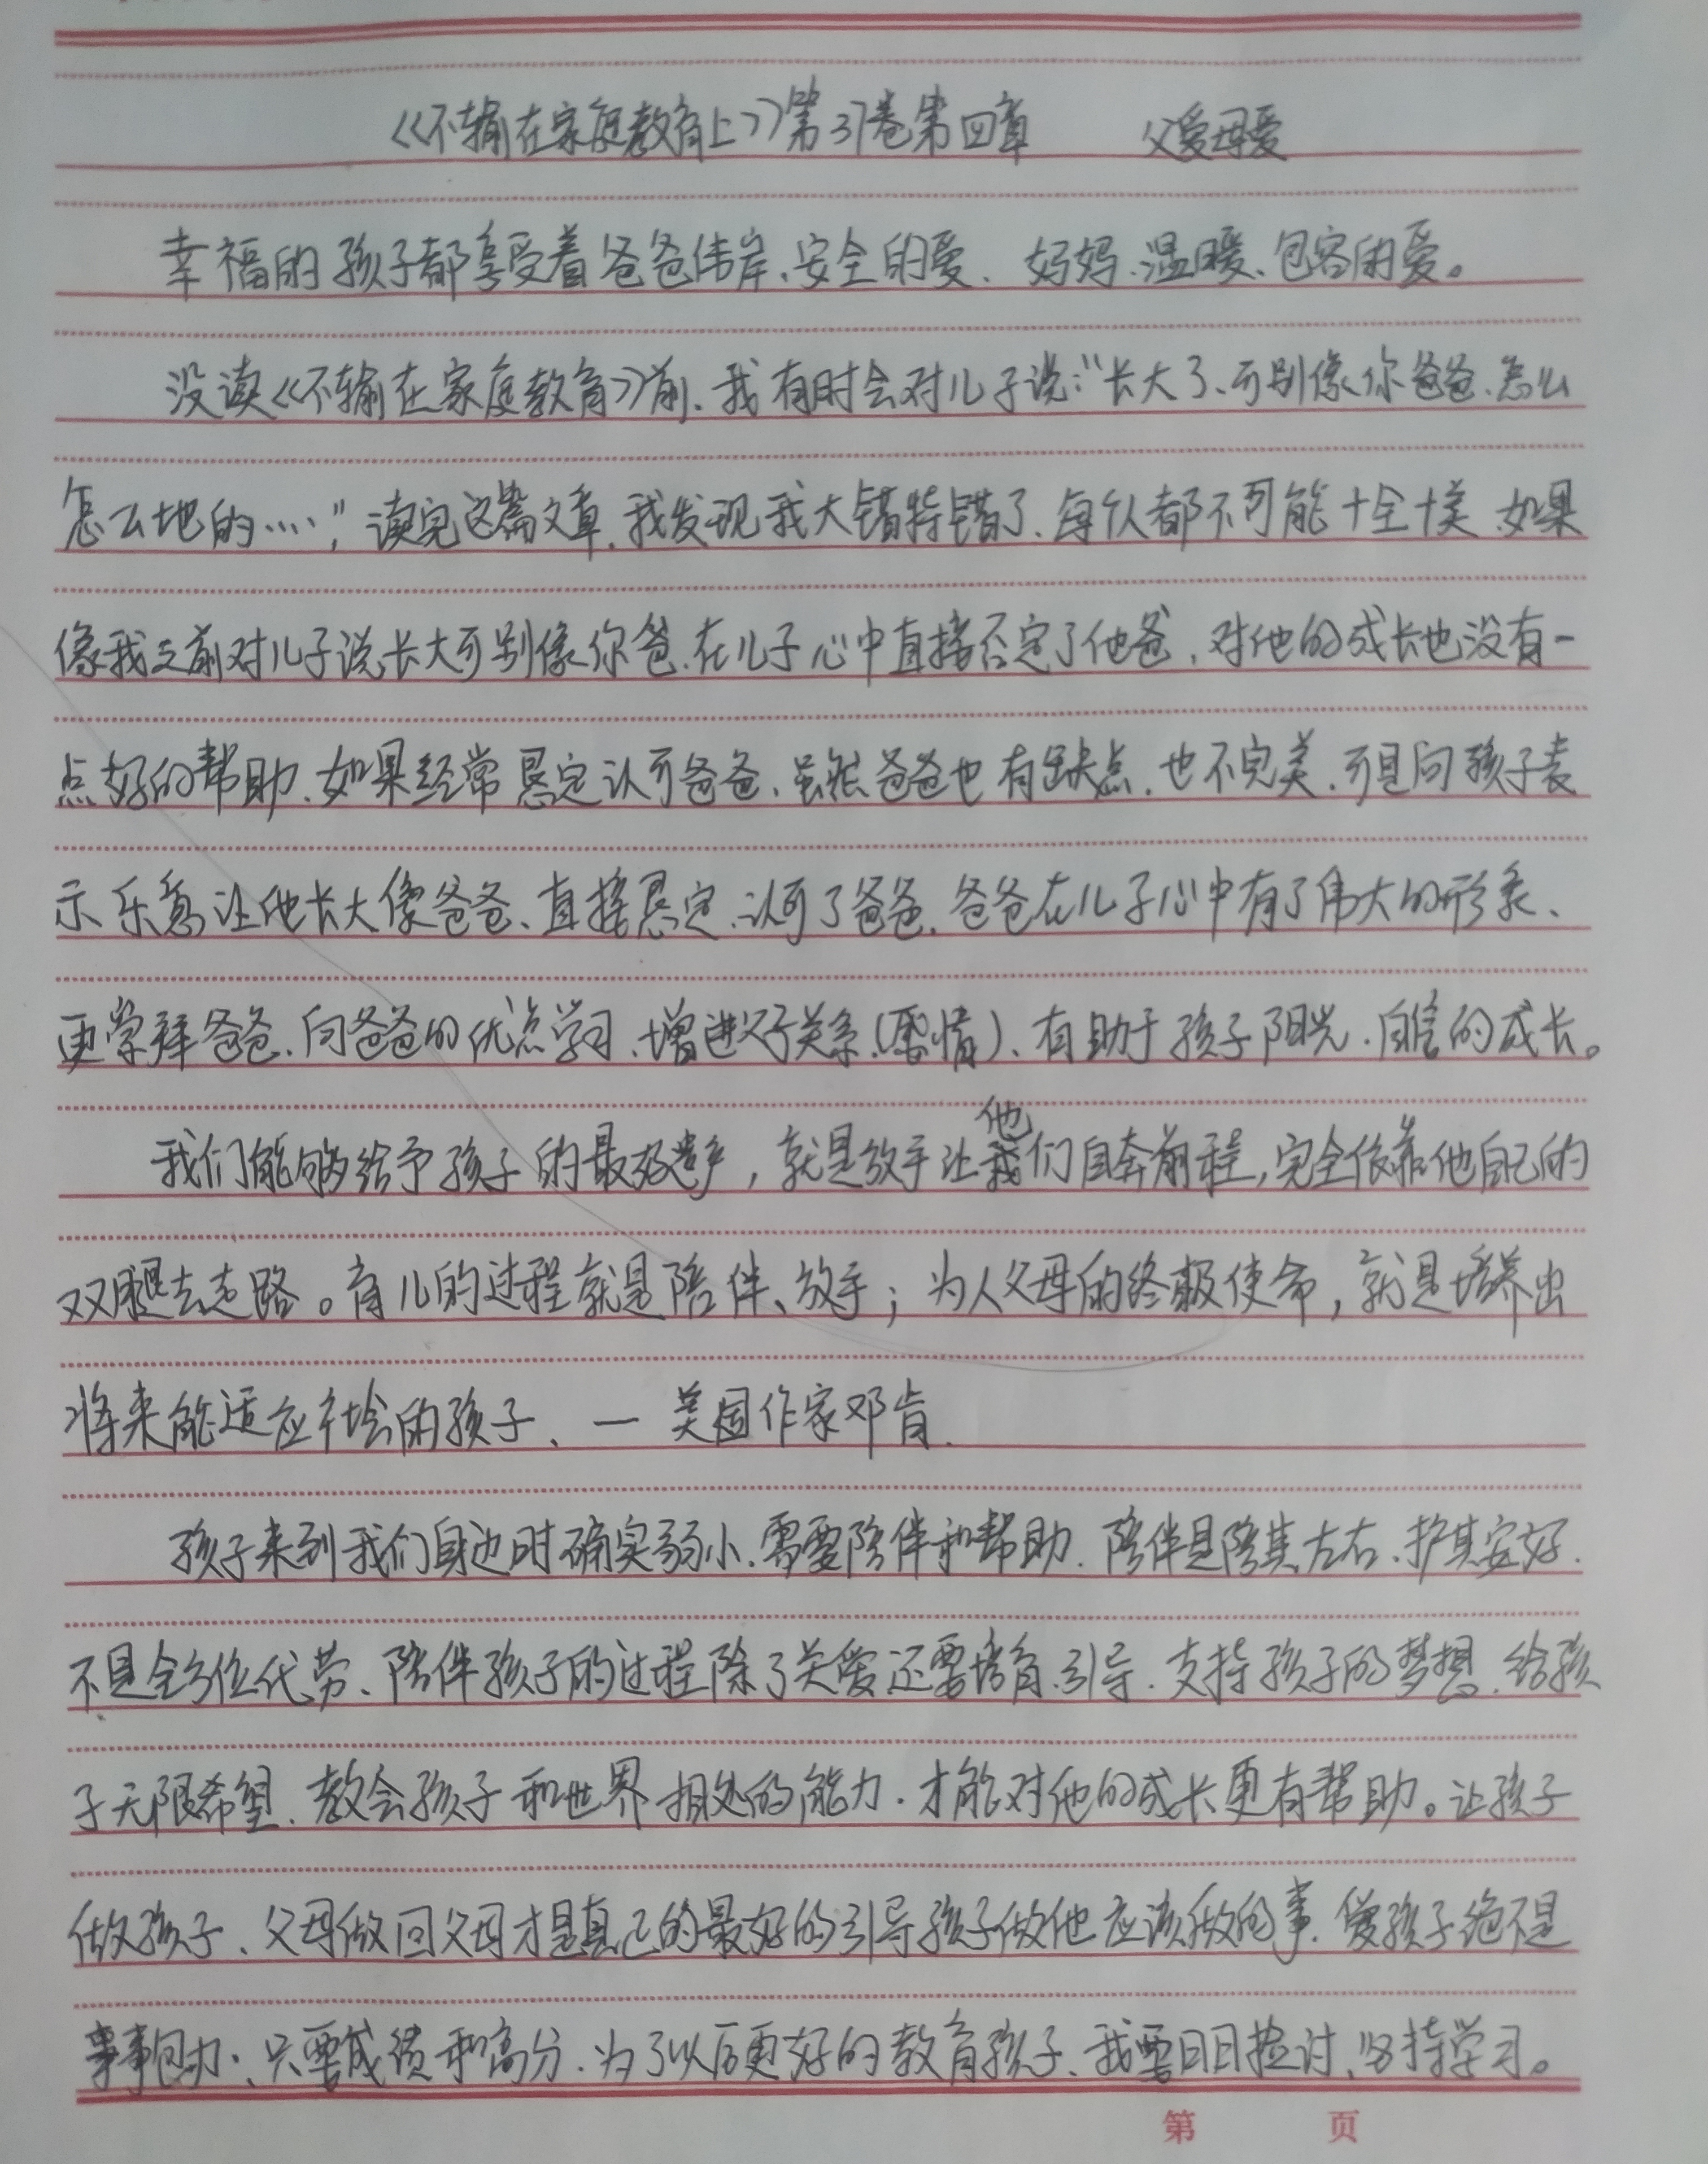 《不输在家庭教育上》第31卷第四章　　父爱母爱
幸福的孩子都享受着爸爸伟岸、安全的爱、妈妈、温暖、包容的爱。
没读《不输在家庭教育》前、我有时会对儿子说:“长大了、可别像你爸爸、怎么
怎么地的……”读完这篇文章、我发现我大错特错了、每个人都不可能十全十美、如果
像我之前对儿子说长大可别像你爸、在儿子心中直接否定了他爸、对他的成长也没有一
点好的帮助、如果经常恳定认可爸爸、虽然爸爸也有缺点、也不完美、可是向孩子表
示乐意让他长大像爸爸、直接恳定、认可了爸爸、爸爸在儿子心中有了伟大的形象、
更崇拜爸爸、向爸爸的优点学习、增进父子关系(感情)、有助于孩子阳光、自信的成长。
我们能够给予孩子的最好遗产，就是放手让他们自奔前程，完全依靠他自己的
双腿去走路。育儿的过程就是陪伴、放手；为人父母的终极使命，就是培养出
将来能适应社会的孩子、—美国作家邓肯.
孩子来到我们身边时确实弱小、需要陪伴和帮助、陪伴是陪其左右、护其安好、
不是全方位代劳、陪伴孩子的过程除了关爱还要培育、引导、支持孩子的梦想、给孩
子无限希望、教会孩子和世界相处的能力、才能对他的成长更有帮助。让孩子
做孩子、父母做回父母才是真正的最好的引导孩子做他应该做的事、爱孩子绝不是
事事包办、只要成绩和高分、为了以后更好的教育孩子、我要日日检讨、坚持学习。
第　　页